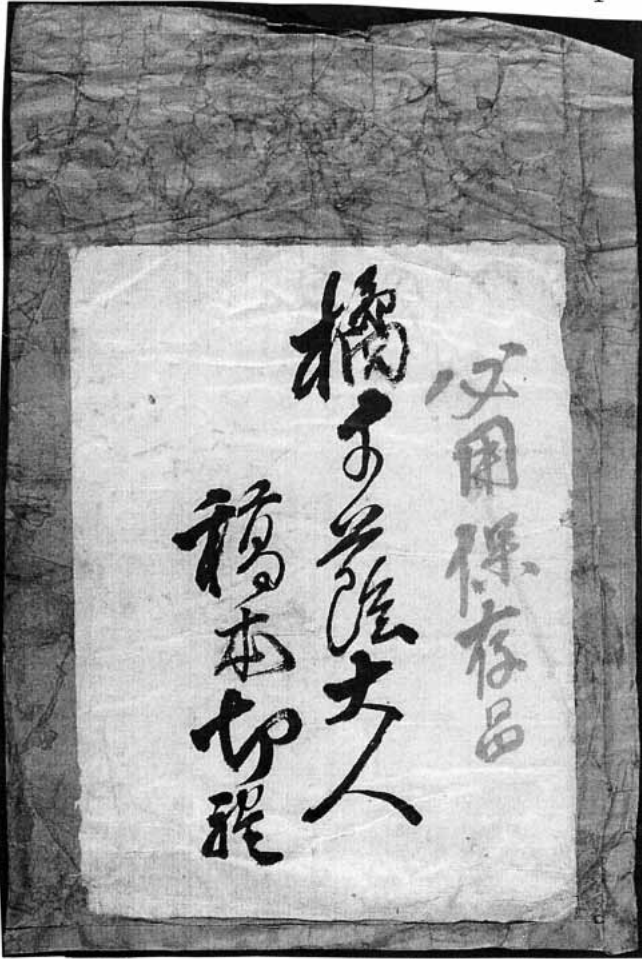 必用保存品
橘千蔭大人
稿本切